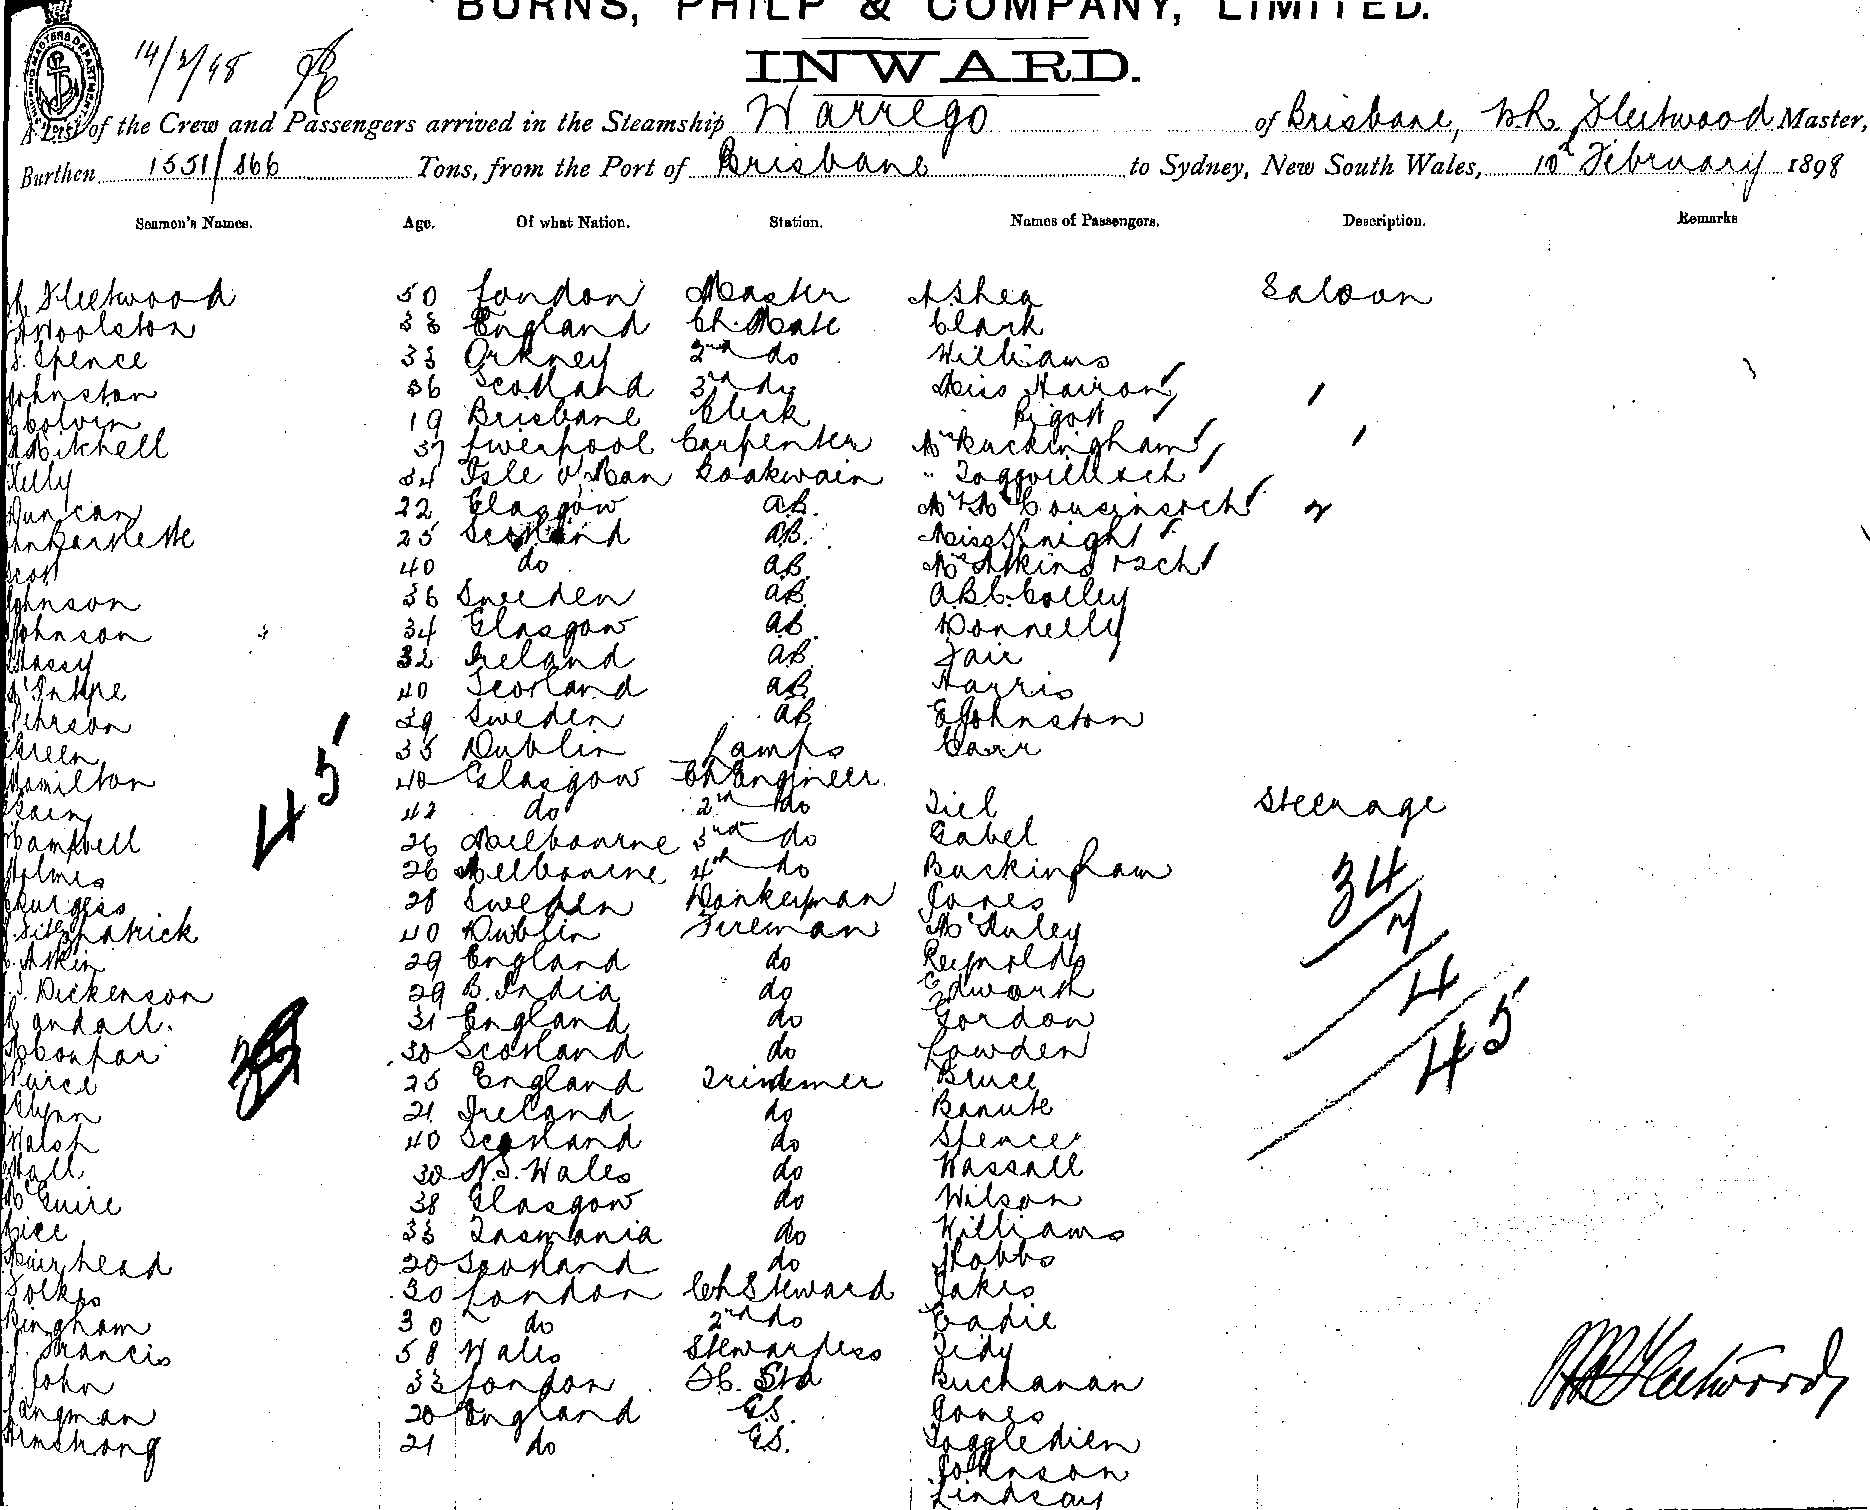 BURNS, PHILP & COMPANY, LIMITED.
INWARD.
14/2/98
A List of the Crew and Passengers arrived in the Steamship Warrego of Brisbane, W.R. Fleetwood Master,
Burthen 1551/866 Tons, from the Port of Brisbane to Sydney, New South Wales, 10th February 1898
Seamen's Names. Age. Of what Nation. Station. Names of Passengers. Description. Remarks
Fleetwood 50 London Master A Shea Saloon
Woolston 33 England Ch. Mate Clark
Spence 33 Orkney 2nd do Williams
Johnston 36 Scotland 3rd do Miss Hairon
Colvin 19 Brisbane Clerk Pigott
Mitchell 37 Liverpool Carpenter Mr Buckingham
Kelly 34 Isle o' Man Boatswain "
Duncan 22 Glasgow AB.
25 Scotland AB. Miss Knight
Scott 40 do AB.
Johnson 36 Sweden AB Colley
Johnson 34 Glasgow AB. Donnelly
Massy 32 Ireland AB Fair
40 Scotland AB Harris
Pehrson 29 Sweden AB E Johnston
Green 35 Dublin Lamps Carr
Hamilton 40 Glasgow Ch Engineer
Bain 42 do 2nd do Tiel Steerage
Campbell 26 Melbourne 3rd do Gabel
Holmes 26 Melbourne 4th do Buckingham
Burgess 28 Sweden Donkeyman Jones
Fitzpatrick 40 Dublin Fireman McAuley
Askin 29 England do Reynolds
Dickenson 29 B. India do Edworth
Randall. 31 England do Gordon
30 Scotland do Lowden
Pearce 25 England Trimmer Bruce
Flynn 21 Ireland do Banute
Walsh 40 Scotland do Spencer
Hall 30 N.S. Wales do Wassall
McGuire 38 Glasgow do Wilson
Rice 33 Tasmania do Williams
Muirhead 20 Scotland do Hobbs
Folkes 30 London Ch Steward Jakes
Bingham 30 do 2nd do Eadie
Francis 58 Wales Stewardess Tidy
John 33 London Buchanan
Langman 20 England G.S. Jones
Armstrong 21 do G.S. Toggledien
Johnson
Lindsay
45
34
7
4
45
WR Fleetwood